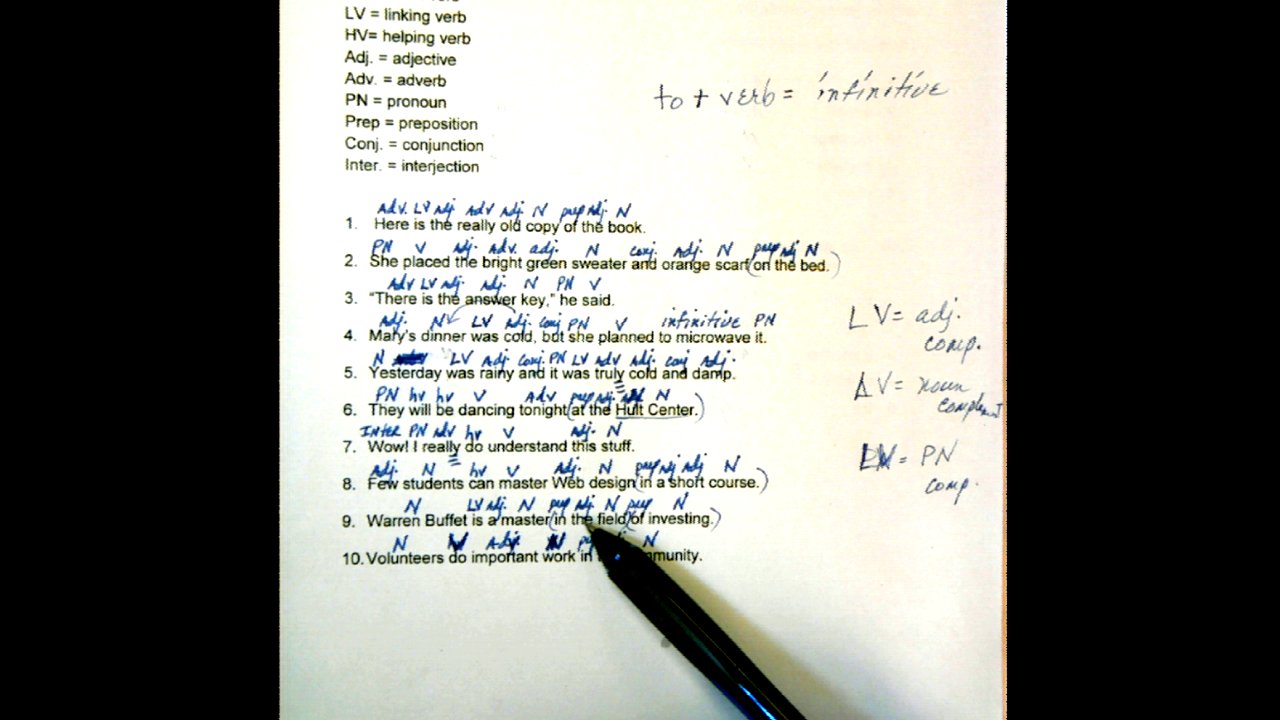 LV = linking verb
HV= helping verb
Adj. = adjective
Adv. = adverb
PN = pronoun
Prep = preposition
Conj. = conjunction
Inter. = interjection
to + verb = infinitive
Adv. LV Adj. Adv Adj. N prep Adj. N
1. Here is the really old copy of the book.
PN V Adj. Adv. adj. N conj. Adj. N prep Adj N
2. She placed the bright green sweater and orange scarf (on the bed.)
Adv LV Adj. Adj. N PN V
3. "There is the answer key," he said.
Adj. N LV Adj. conj PN V infinitive PN
4. Mary's dinner was cold, but she planned to microwave it.
N LV Adj. conj. PN LV Adv Adj. conj Adj.
5. Yesterday was rainy and it was truly cold and damp.
PN hv hv V Adv prep Adj. N
6. They will be dancing tonight (at the Hult Center.)
INTER PN adv hv V Adj. N
7. Wow! I really do understand this stuff.
Adj. N hv V Adj. N prep Adj Adj N
8. Few students can master Web design (in a short course.)
N LV Adj. N prep adj N prep N
9. Warren Buffet is a master (in the field) (of investing.)
N V Adj. N N
10. Volunteers do important work in
LV = adj.
comp.
LV = noun
complement
LV = PN
comp.